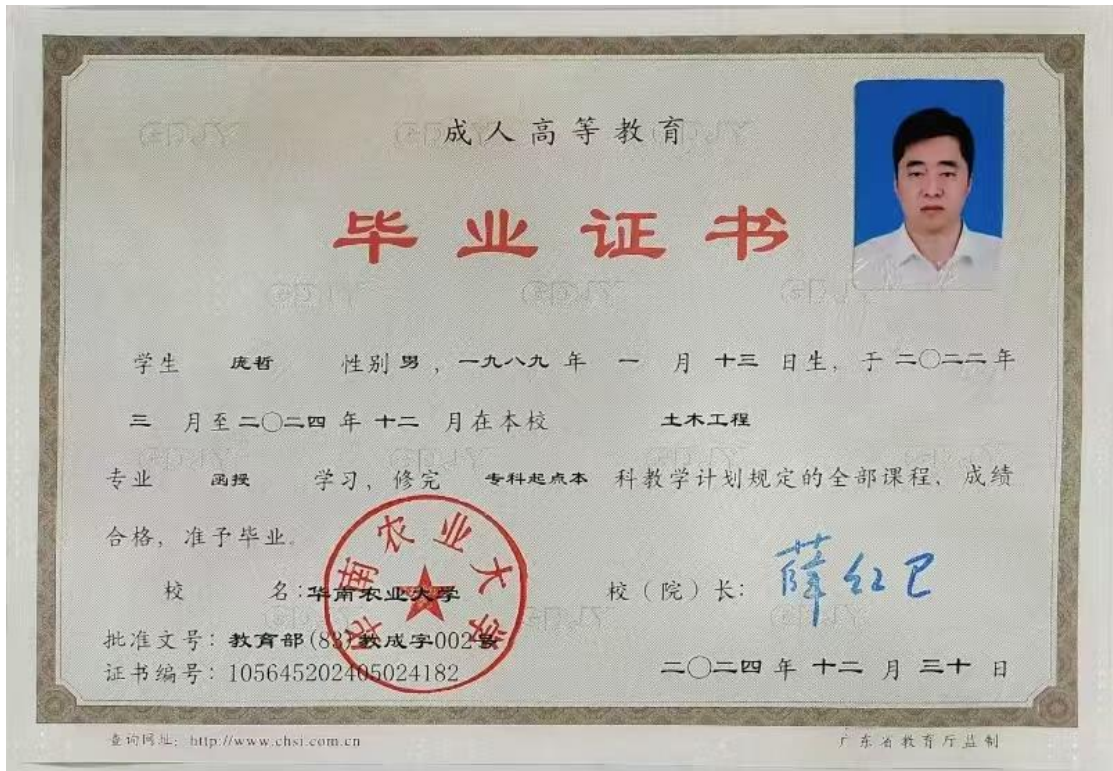 成人高等教育
毕业证书
学生 庞哲 性别 男 ，一九八九 年 一 月 十三 日生，于 二〇二二 年
三 月至 二〇二四 年 十二 月在本校 土木工程
专业 函授 学习，修完 专科起点本 科教学计划规定的全部课程，成绩
合格，准予毕业。
华南农业大学
校 名：华南农业大学 校（院）长：薛红卫
批准文号：教育部(83)教成字002号
证书编号：105645202405024182 二〇二四 年 十二 月 三十 日
查询网址：http://www.chsi.com.cn 广东省教育厅监制